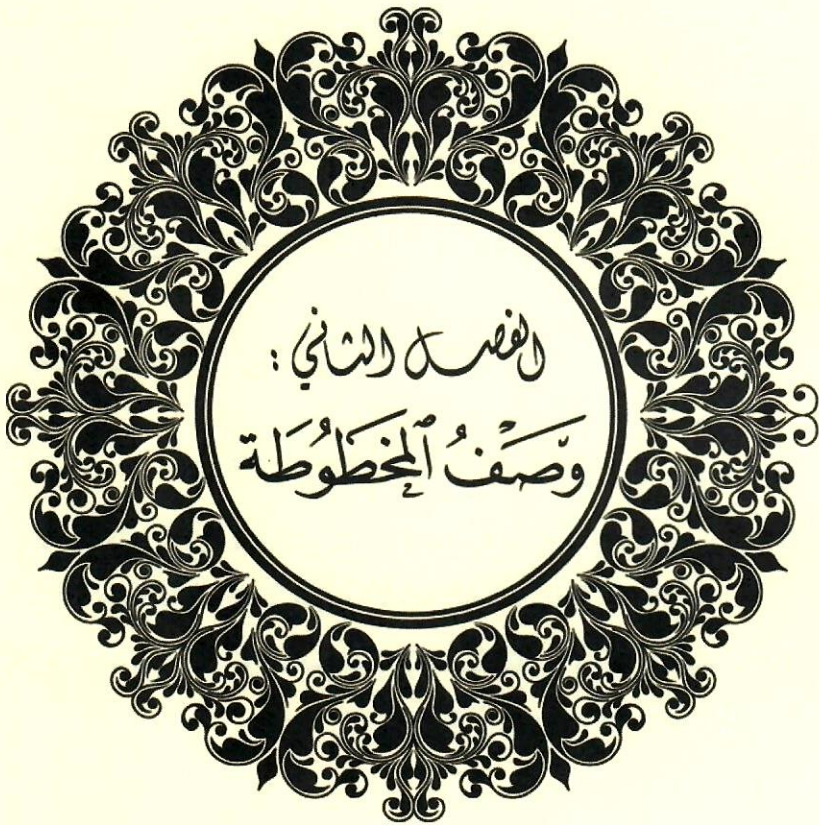 الفصل الثاني :
وَصْفُ ٱلمَخْطُوطَة